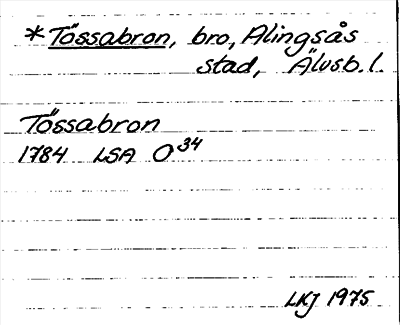 * Tössabron, bro, Alingsås
stad, Älvsb. l.
Tössabron
1784 LSA O34
LKJ 1975